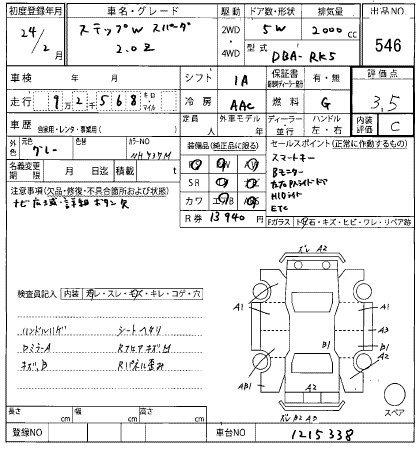 初度登録年月 車名・グレード 駆動 ドア数・形状 排気量 出品NO.
24年 2月 ステップW スパーダ 2.0Z 2WD・4WD 5W 2000cc 546
型式 DBA-RK5
車検 年 月 シフト IA 保証書 有・無 評価点
走行 92568 キロ マイル 冷房 AAC 燃料 G 3,5
車歴 自家用・レンタ・事業用( ) 定員 人 外車モデル 年 ディーラー 並行 ハンドル 左・右 内装 C
外色 元色 グレー 色替 カラーNO NH737M
装備品(純正品に限る) セールスポイント(正常に動作するもの)
名義変更期限 月 日迄 積載 t
SR
カワ エアB
R券 13940円
スマートキー
Bモニター
HIDライト
ETC
注意事項(欠品・修復・不具合箇所および状態)
Fガラス トビ石・キズ・ヒビ・ワレ・リペア跡
検査員記入 内装 汚レ・スレ・キズ・キレ・コゲ・穴
ハンドルハゲ シートヘタリ
DミラーA
キズ,B Rパネル歪み
ズレ A2
A1 A1
A3
B1
AB1 A2
A2
スペア
ズレ B2 A3
長さ cm 幅 cm 高さ cm
登録NO 車台NO 1215338